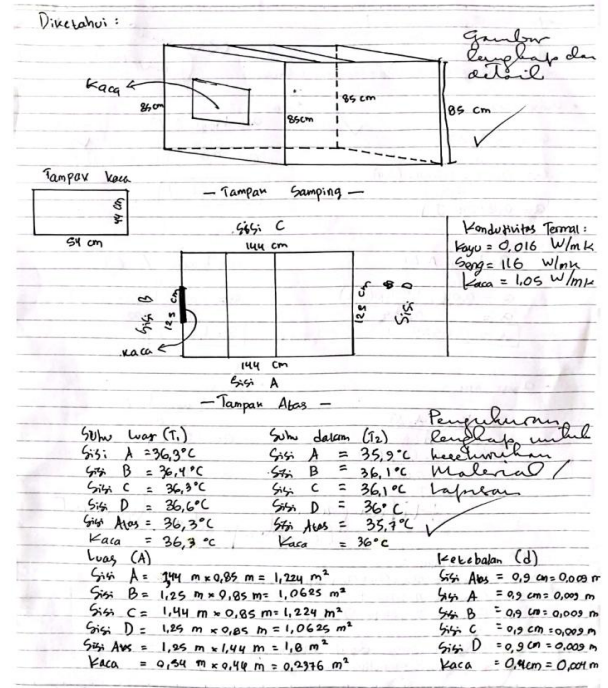 Diketahui :
Gambar
lengkap dan
detail
Kaca
85 cm
85 cm
85cm
85 cm
Tampak kaca
44 cm
54 cm
— Tampak Samping —
Sisi C
144 cm
Sisi B
125 cm
kaca
125 cm
Sisi D
144 cm
Sisi A
— Tampak Atas —
Konduktivitas Termal :
Kayu = 0,016 W/mk
Seng = 116 W/mk
Kaca = 1,05 W/mk
Pengukuran
lengkap untuk
keseluruhan
Material /
Lapisan
Suhu luar (T1)
Sisi A = 36,3°C
Sisi B = 36,4°C
Sisi C = 36,3°C
Sisi D = 36,6°C
Sisi Atas = 36,3°C
Kaca = 36,3 °C
Suhu dalam (T2)
Sisi A = 35,9°C
Sisi B = 36,1°C
Sisi C = 36,1°C
Sisi D = 36°C
Sisi Atas = 35,7°C
Kaca = 36°C
Luas (A)
Sisi A = 1,44 m x 0,85 m = 1,224 m²
Sisi B = 1,25 m x 0,85 m = 1,0625 m²
Sisi C = 1,44 m x 0,85 m = 1,224 m²
Sisi D = 1,25 m x 0,85 m = 1,0625 m²
Sisi Atas = 1,25 m x 1,44 m = 1,8 m²
Kaca = 0,54 m x 0,44 m = 0,2376 m²
Ketebalan (d)
Sisi Atas = 0,9 cm = 0,009 m
Sisi A = 0,9 cm = 0,009 m
Sisi B = 0,9 cm = 0,009 m
Sisi C = 0,9 cm = 0,009 m
Sisi D = 0,9 cm = 0,009 m
Kaca = 0,4cm = 0,004 m